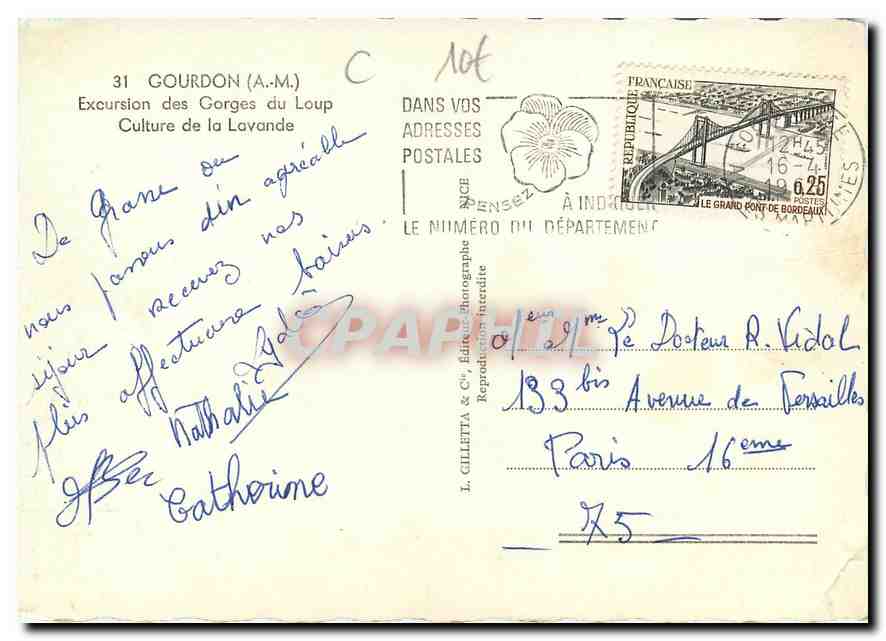 31 GOURDON (A.-M.)
Excursion des Gorges du Loup
Culture de la Lavande
De Grasse ou
nous passons d'un agréable
séjour recevez nos
plus affectueux baisers.
Nathalie
Catherine
C
10€
DANS VOS
ADRESSES
POSTALES
PENSEZ
À INDIQUER
LE NUMÉRO DU DÉPARTEMENT
RÉPUBLIQUE FRANÇAISE
0,25
POSTES
LE GRAND PONT DE BORDEAUX
12H45
16-4
L. GILLETTA & Cie, Éditeur-Photographe NICE
Reproduction interdite
CPAPHIL
Mme Le Docteur R. Vidal
133 bis Avenue de Versailles
Paris 16eme
75